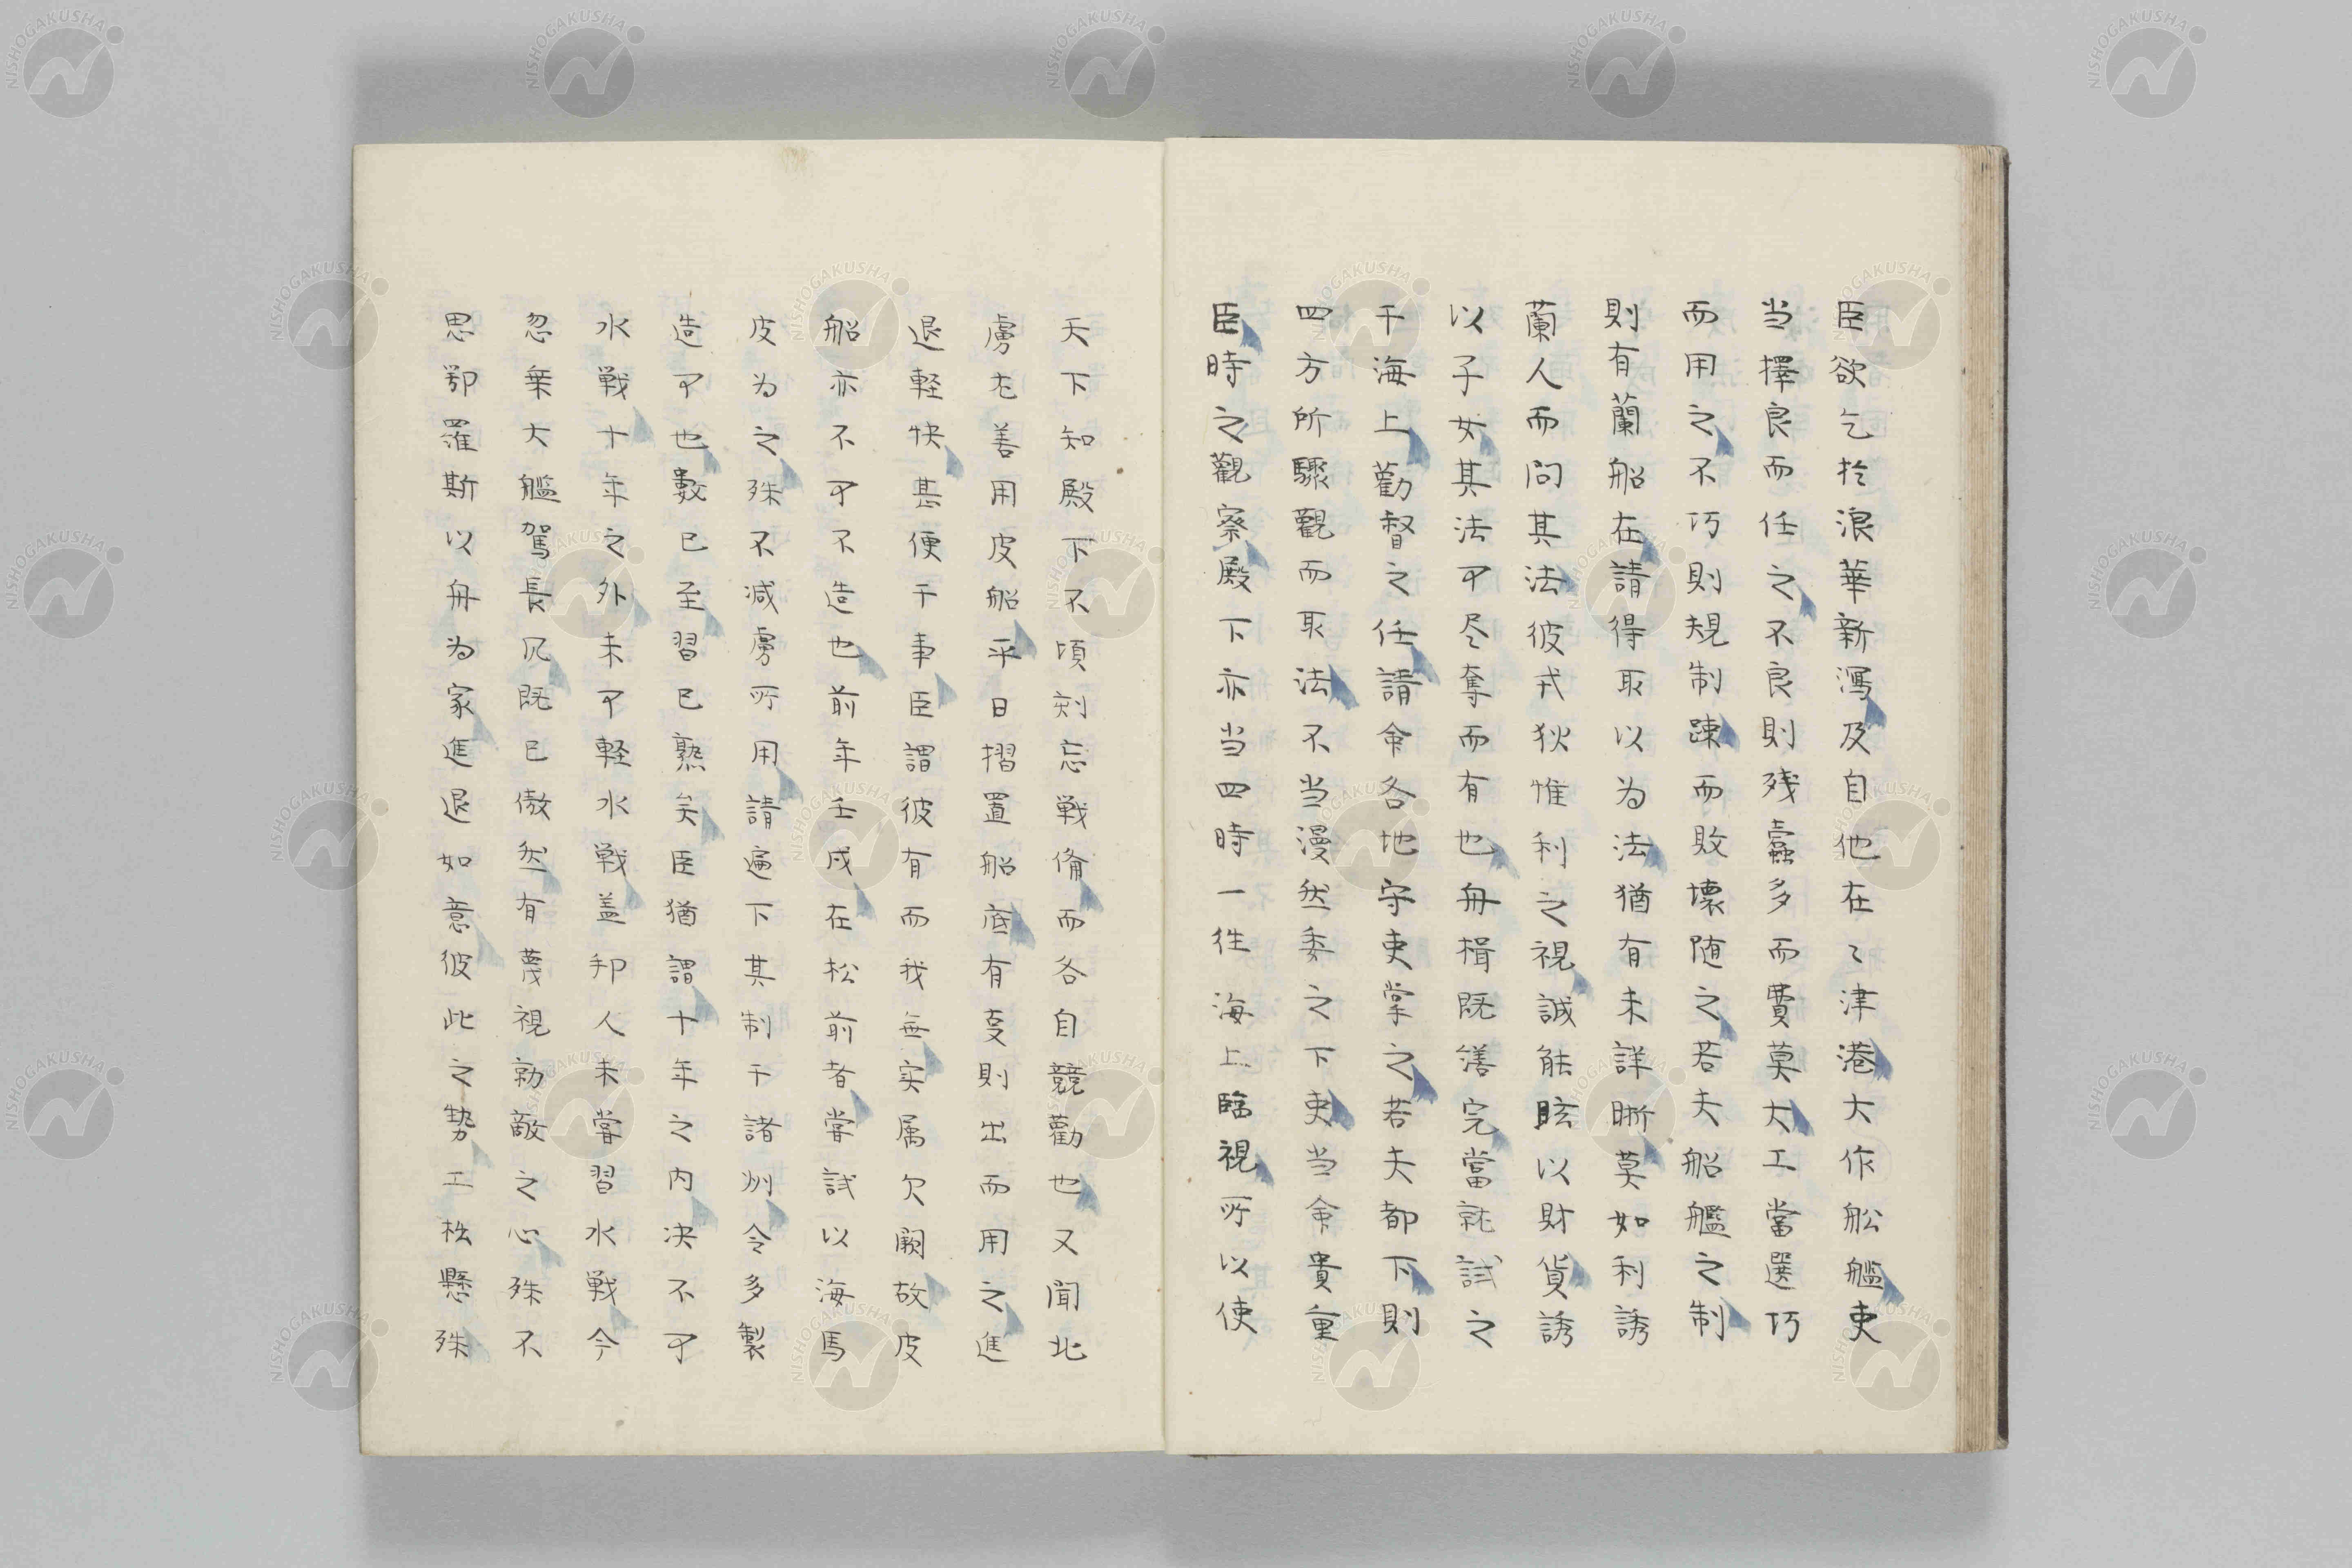 臣欲乞於浪華新潟及自他在々津港大作舩艦吏
当擇良而任之不良則残蠹多而費莫大工當選巧
而用之不巧則規制踈而敗壊随之若夫船艦之制
則有蘭船在請得取以為法猶有未詳晰莫如利誘
蘭人而問其法彼戎狄惟利之視誠能眩以財貨誘
以子女其法可尽奪而有也舟楫既繕完當試試之
干海上勸督之任請命各地守吏掌之若夫都下則
四方所驟觀而取法不当漫然委之下吏当命貴重
臣時之觀察殿下亦当四時一往海上臨視所以使
天下知殿下不頃刻忘戦備而各自競勸也又聞北
虜尤善用皮船平日摺置船底有変則出而用之進
退軽快甚便干事臣謂彼有而我無实属欠闕故皮
船亦不可不造也前年壬戌在松前者嘗試以海馬
皮为之殊不减虜所用請遍下其制干諸州令多製
造可也數已至習已熟矣臣猶謂十年之内决不可
水戦十年之外未可軽水戦盖邦人未嘗習水戦今
忽乗大艦駕長风既已傲然有蔑視勍敵之心殊不
思鄂羅斯以舟为家進退如意彼此之勢工拙懸殊
NISHOGAKUSHA